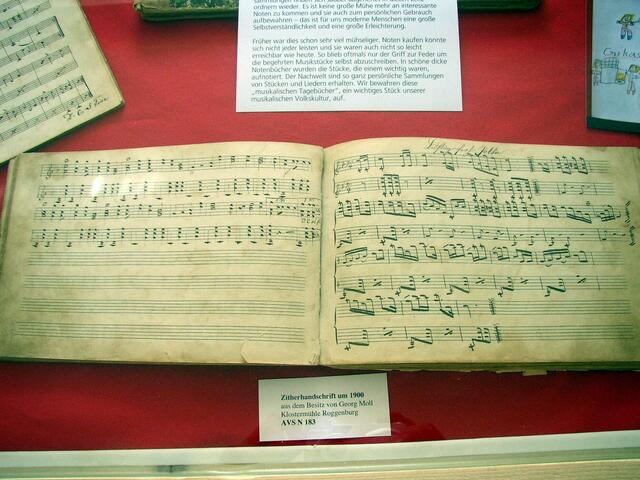 ordnern wieder. Es ist keine große Mühe mehr an interessante
Noten zu kommen und sie auch zum persönlichen Gebrauch
aufbewahren – das ist für uns moderne Menschen eine große
Selbstverständlichkeit und eine große Erleichterung.
Früher war dies schon sehr viel mühseliger. Noten kaufen konnte
sich nicht jeder leisten und sie waren auch nicht so leicht
erreichbar wie heute. So blieb oftmals nur der Griff zur Feder um
die begehrten Musikstücke selbst abzuschreiben. In schöne dicke
Notenbücher wurden die Stücke, die einem wichtig waren,
aufnotiert. Der Nachwelt sind so ganz persönliche Sammlungen
von Stücken und Liedern erhalten. Wir bewahren diese
„musikalischen Tagebücher", ein wichtiges Stück unserer
musikalischen Volkskultur, auf.
Zitherhandschrift um 1900
aus dem Besitz von Georg Moll
Klostermühle Roggenburg
AVS N 183